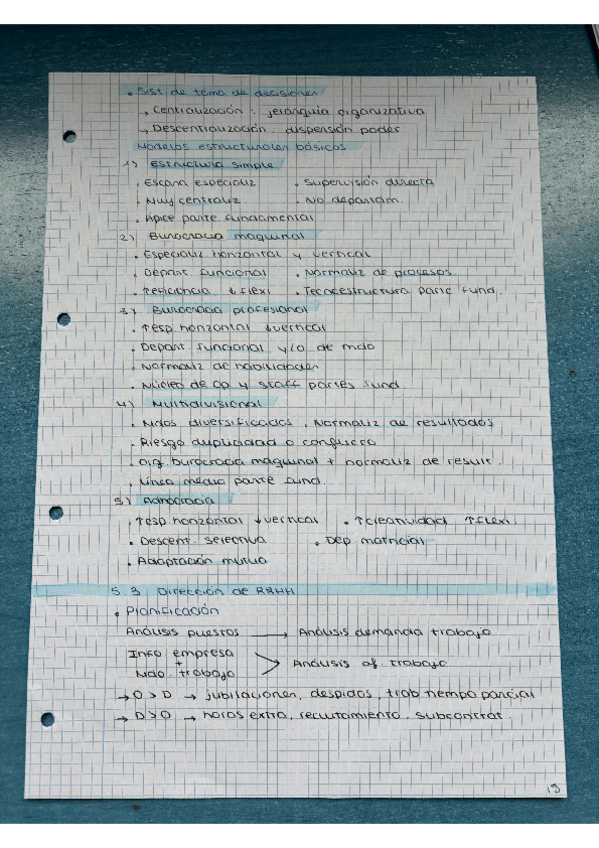 . Sist. de toma de decisiones
→ Centralización : jerarquía organizativa
→ Descentralización : dispersión poder
Modelos estructurales básicos
1) Estructura simple
. Escasa especializ . Supervisión directa
. Muy centraliz . No departam.
. Ápice parte fundamental
2) Burocracia maquinal
. Especializ horizontal y vertical
. Depart funcional . Normaliz de procesos
. ↑eficiencia ↓flexi . Tecnoestructura parte fund.
3) Burocracia profesional
. ↑esp. horizontal ↓vertical
. Depart. funcional y/o de mdo
. Normaliz de habilidades
. Núcleo de op y staff partes fund
4) Multidivisional
. Mdos diversificados . Normaliz de resultados
. Riesgo duplicidad o conflicto
. Org. burocracia maquinal + normaliz de result.
. Línea media parte fund.
5) Adhocracia
. ↑esp. horizontal ↓vertical . ↑creatividad ↑flexi
. Descent. selectiva . Dep matricial
. Adaptación mutua
5.3 Dirección de RRHH
. Planificación
Análisis puestos → Análisis demanda trabajo
Info empresa
+
Mdo. trabajo > Análisis of. trabajo
→ O > D → jubilaciones, despidos, trab tiempo parcial
→ D > O → horas extra, reclutamiento, subcontrat.
19